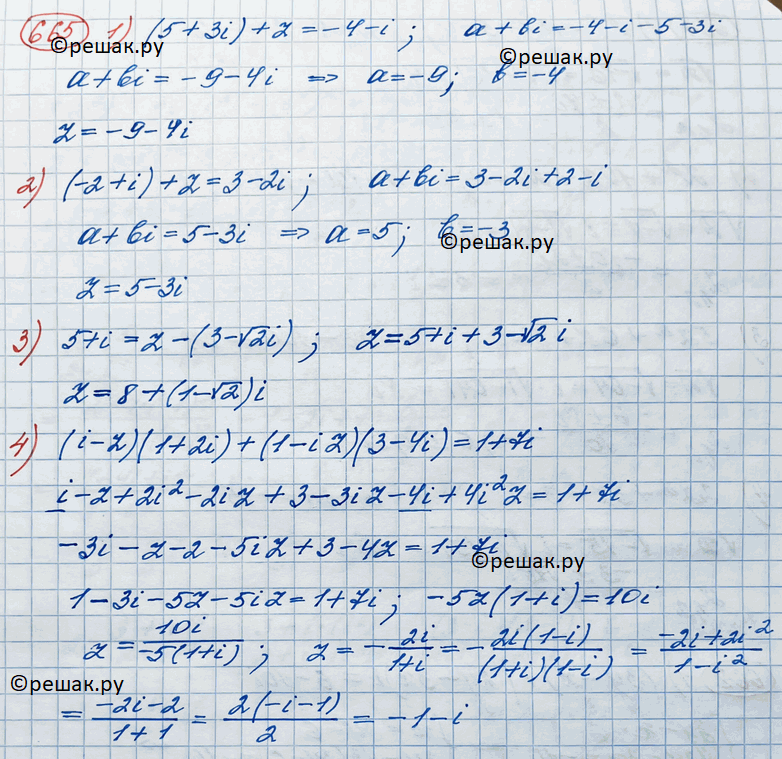 665 1) (5+3i)+z=-4-i; a+bi=-4-i-5-3i
©решак.ру ©решак.ру
a+bi=-9-4i => a=-9; b=-4
z=-9-4i
2) (-2+i)+z=3-2i; a+bi=3-2i+2-i
a+bi=5-3i => a=5; b=-3
©решак.ру
z=5-3i
3) 5+i=z-(3-√2i); z=5+i+3-√2i
z=8+(1-√2)i
4) (i-z)(1+2i)+(1-iz)(3-4i)=1+7i
i-z+2i²-2iz+3-3iz-4i+4i²z=1+7i
-3i-z-2-5iz+3-4z=1+7i
©решак.ру
1-3i-5z-5iz=1+7i; -5z(1+i)=10i
z=10i/-5(1+i); z=-2i/1+i=-2i(1-i)/(1+i)(1-i)=-2i+2i²/1-i²
©решак.ру
=-2i-2/1+1=2(-i-1)/2=-1-i